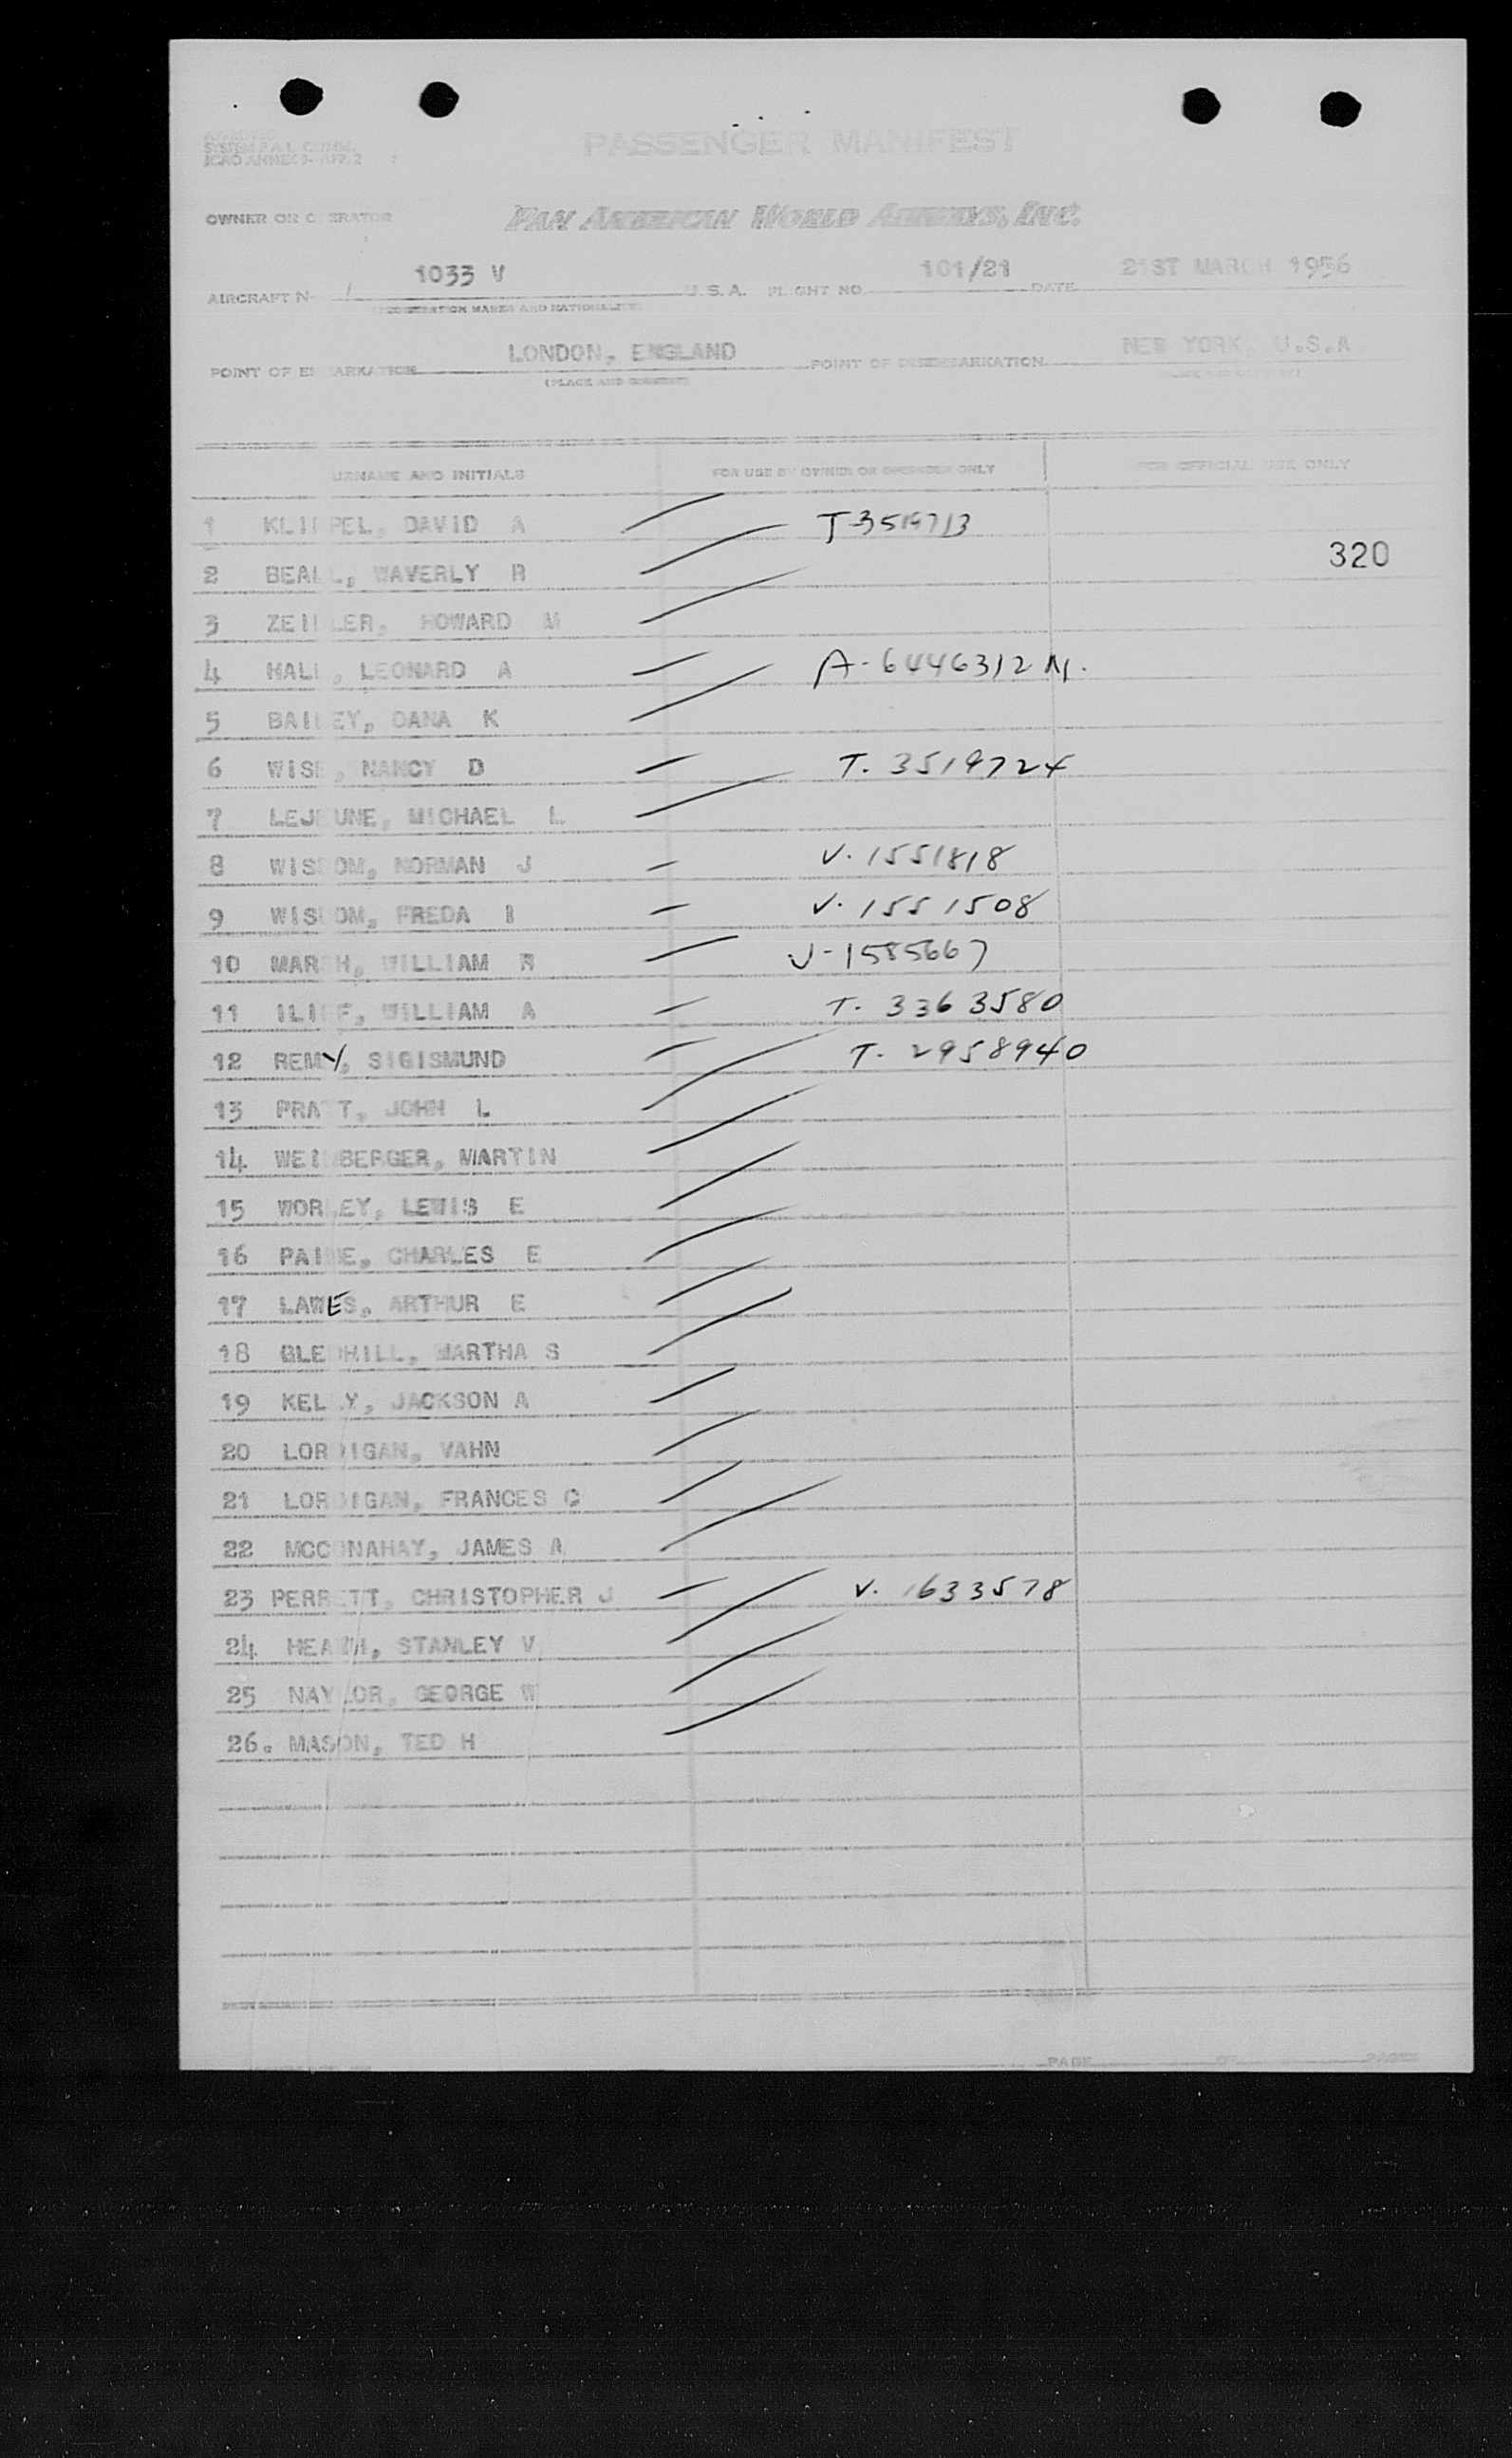 APPROVED
SYSTEM F.A.L. COMM.
ICAO ANNEX 9-APP. 2
PASSENGER MANIFEST
OWNER OR OPERATOR PAN AMERICAN WORLD AIRWAYS, INC.
AIRCRAFT N 1033 V U.S.A. FLIGHT NO. 101/21 DATE 21ST MARCH 1956
(REGISTRATION MARKS AND NATIONALITY)
POINT OF EMBARKATION LONDON, ENGLAND POINT OF DISEMBARKATION NEW YORK, U.S.A
(PLACE AND COUNTRY) (PLACE AND COUNTRY)
SURNAME AND INITIALS FOR USE BY OWNER OR OPERATOR ONLY FOR OFFICIAL USE ONLY
1 DAVID A
320
2 BEALL, WAVERLY R
3 HOWARD M
4 HALL, LEONARD A A-6446312 M.
5 BAILEY, DANA K
6 WISE, NANCY D T. 3519724
7 LEJEUNE, MICHAEL L
8 WISDOM, NORMAN J V. 1551818
9 WISDOM, FREDA I V. 1551508
10 MARSH, WILLIAM R V-1585667
11 ILIFF, WILLIAM A T. 3363580
12 REMY, SIGISMUND T. 2958940
13 PRATT, JOHN L
14 MARTIN
15 WORLEY, LEWIS E
16 PAINE, CHARLES E
17 LAWES, ARTHUR E
18 GLEDHILL, MARTHA S
19 KELLY, JACKSON A
20 VAHN
21 FRANCES C
22 MCCONAHAY, JAMES A
23 PERRETT, CHRISTOPHER J V. 1633578
24 STANLEY V
25 NAYLOR, GEORGE W
26. MASON, TED H
PAGE OF PAGES